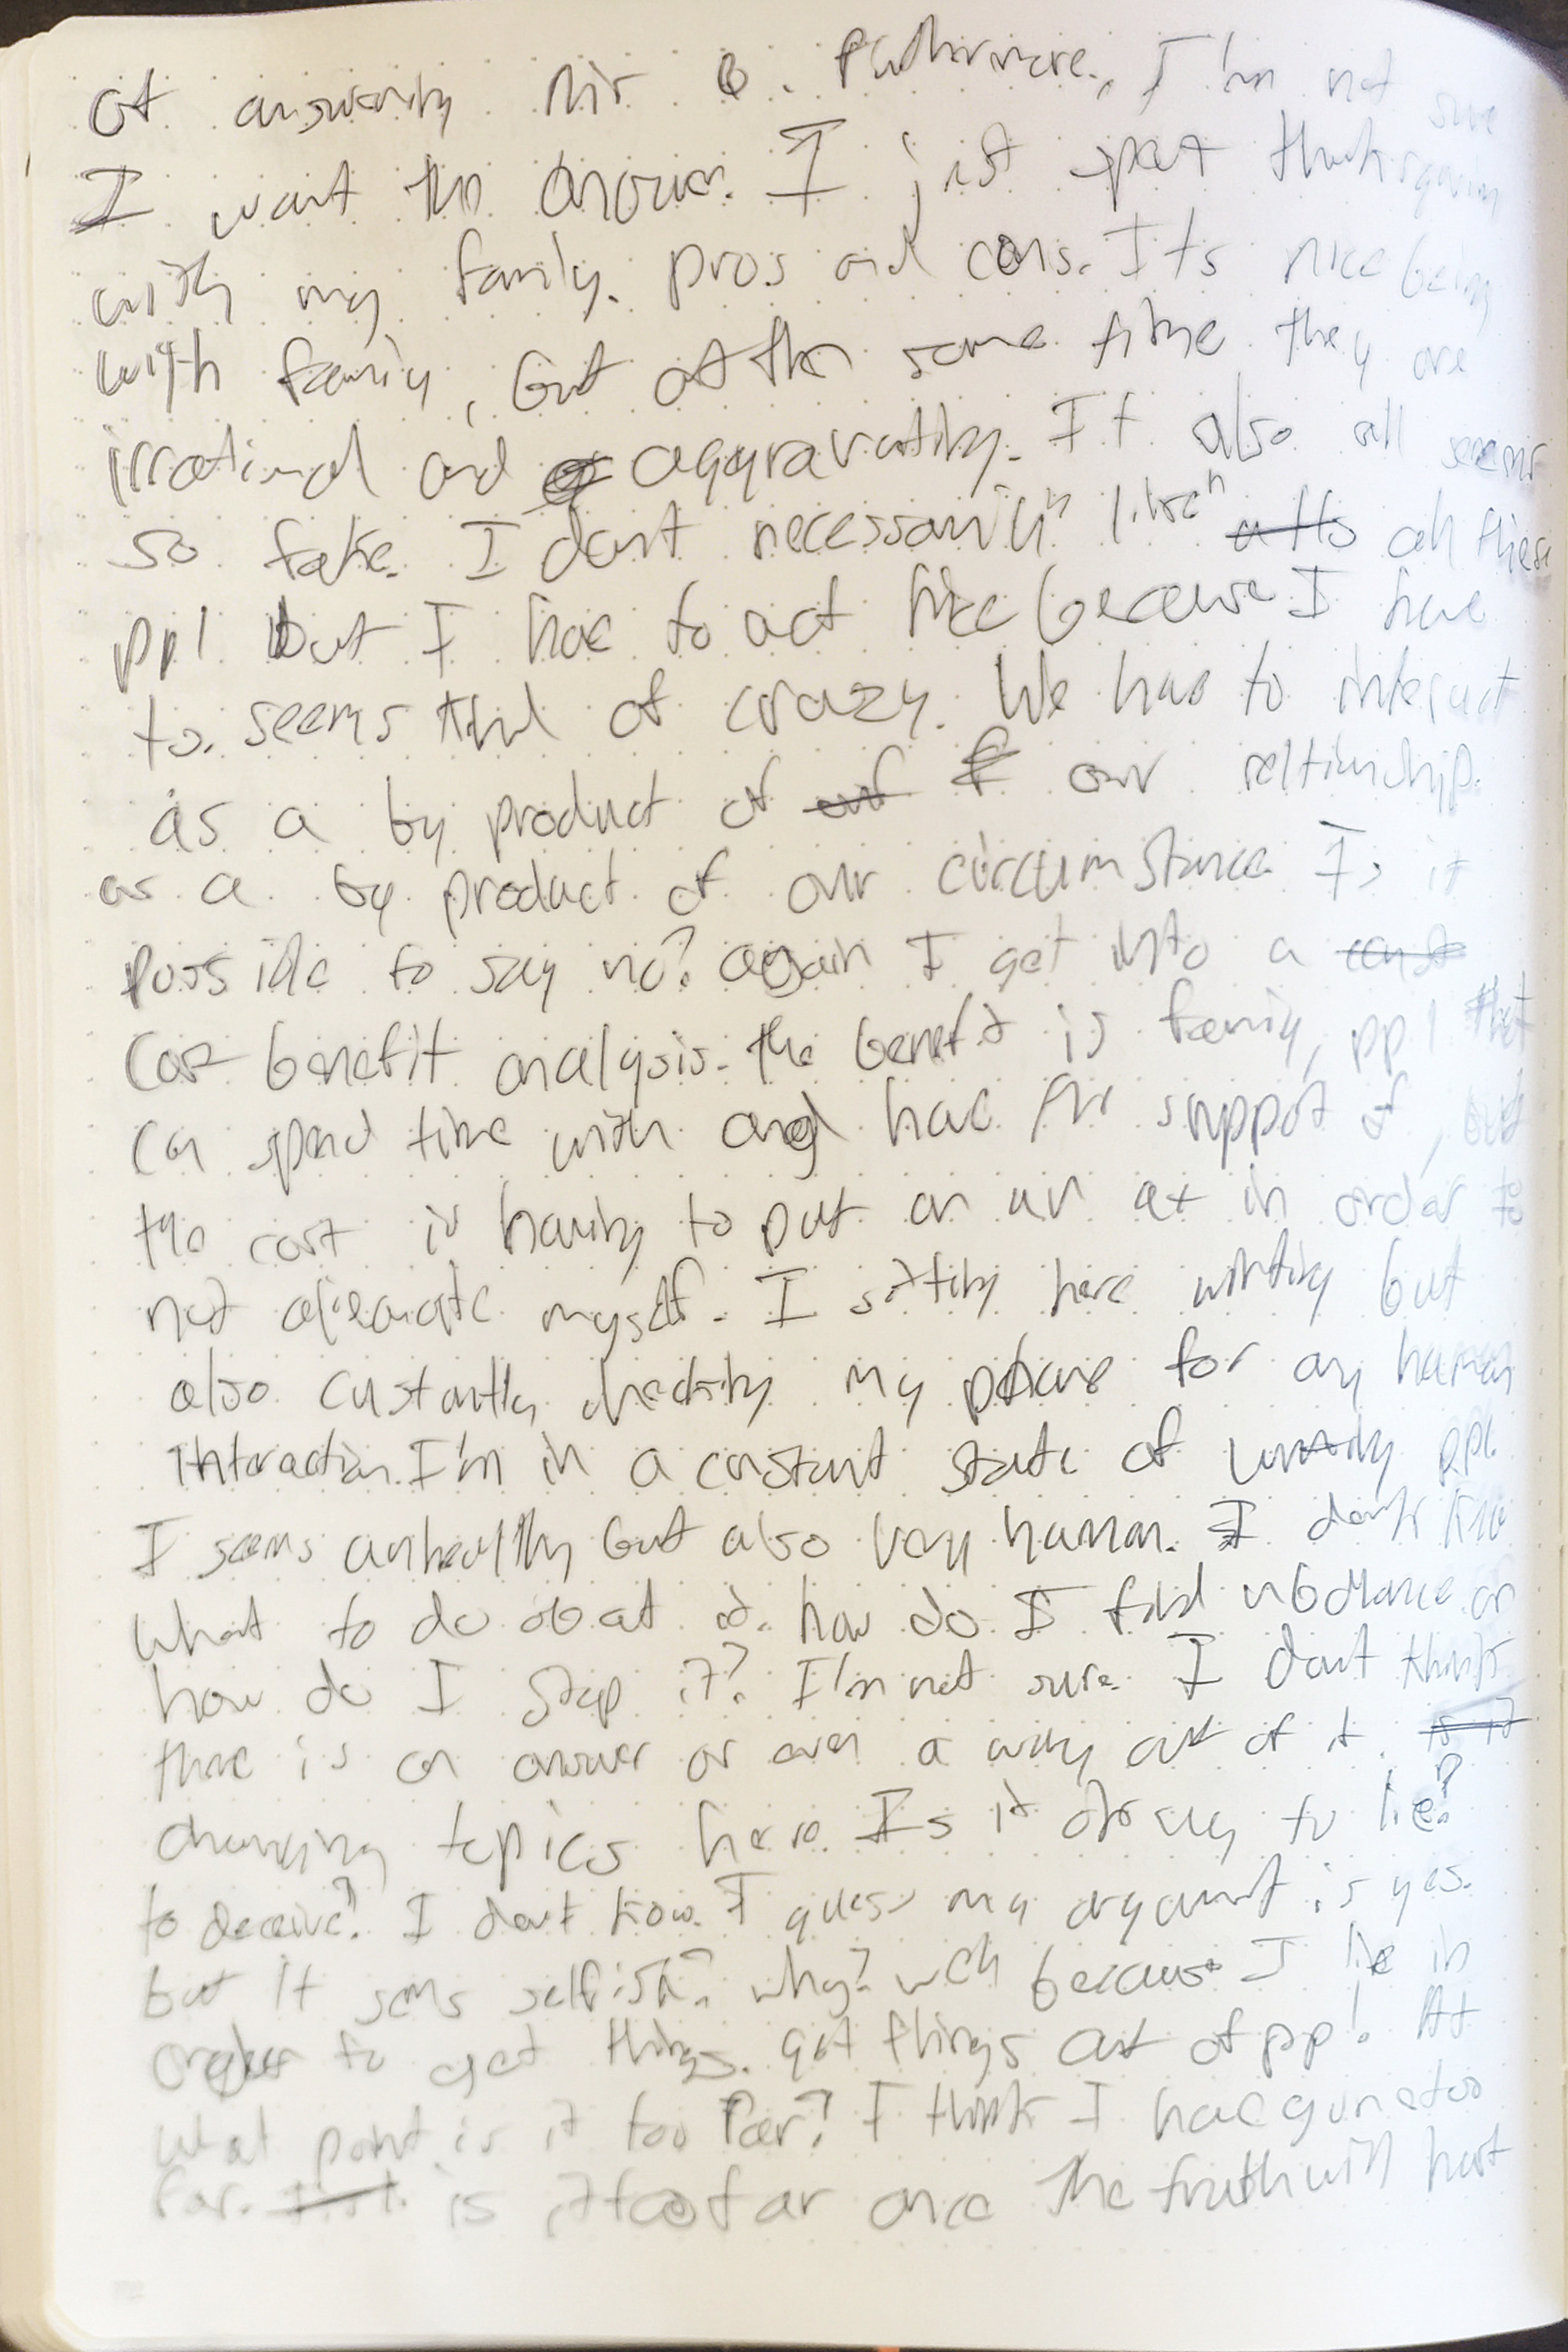 of answering this Q. Futhermore, I'm not sure
I want the answer. I just spent thanksgiving
with my family. pros and cons. Its nice being
with family, but at the same time they are
irrational and aggravating. It also all seems
so fake. I dont necessarily "like" all these
ppl but I have to act like because I have
to. seems kind of crazy. We have to interact
as a by product of our reltionship.
as a by product of our circumstance Is it
possible to say no? again I get into a
cost benefit analysis. the benefit is family, ppl that
can spend time with and have the support of, but
the cost is having to put on an act in order to
not alienate myself. I sitting here writing but
also constantly checking my phone for any human
interaction. I'm in a constant state of wanting ppl.
I seems unhealthy but also very human. I don't know
what to do about it. how do I find balance or
how do I stop it? I'm not sure. I dont think
there is an answer or even a way out of it.
changing topics here. Is it okay to lie?
to deceive? I dont know. I guess my argument is yes.
but It seems selfish? why? well because I lie in
order to get things. get things out of ppl. At
what point is it too far? I think I have gone too
far. is it too far once the truth will hurt